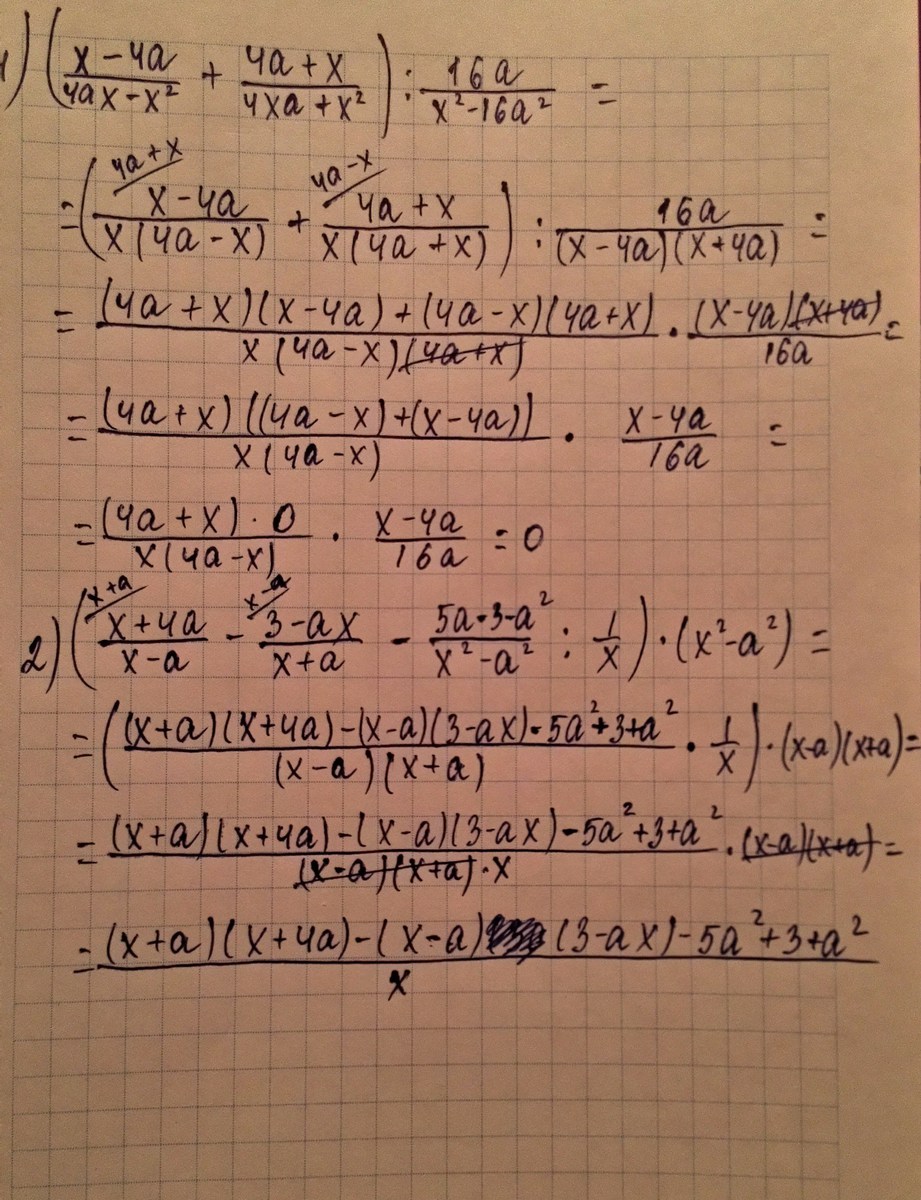 1) ((x-4a)/(4ax-x²) + (4a+x)/(4xa+x²)) : 16a/(x²-16a²) =
= ((x-4a)/(x(4a-x)) ^(4a+x) + (4a+x)/(x(4a+x)) ^(4a-x)) : 16a/((x-4a)(x+4a)) =
= ((4a+x)(x-4a)+(4a-x)(4a+x))/(x(4a-x)(4a+x)) · ((x-4a)(x+4a))/16a =
= ((4a+x)((4a-x)+(x-4a)))/(x(4a-x)) · (x-4a)/16a =
= ((4a+x)·0)/(x(4a-x)) · (x-4a)/16a = 0
2) ((x+4a)/(x-a) ^(x+a) - (3-ax)/(x+a) ^(x-a) - (5a·3-a²)/(x²-a²) : 1/x) · (x²-a²) =
= (((x+a)(x+4a)-(x-a)(3-ax)-5a²+3+a²)/((x-a)(x+a)) · 1/x) · (x-a)(x+a) =
= ((x+a)(x+4a)-(x-a)(3-ax)-5a²+3+a²)/((x-a)(x+a)·x) · (x-a)(x+a) =
= ((x+a)(x+4a)-(x-a)(3-ax)-5a²+3+a²)/x